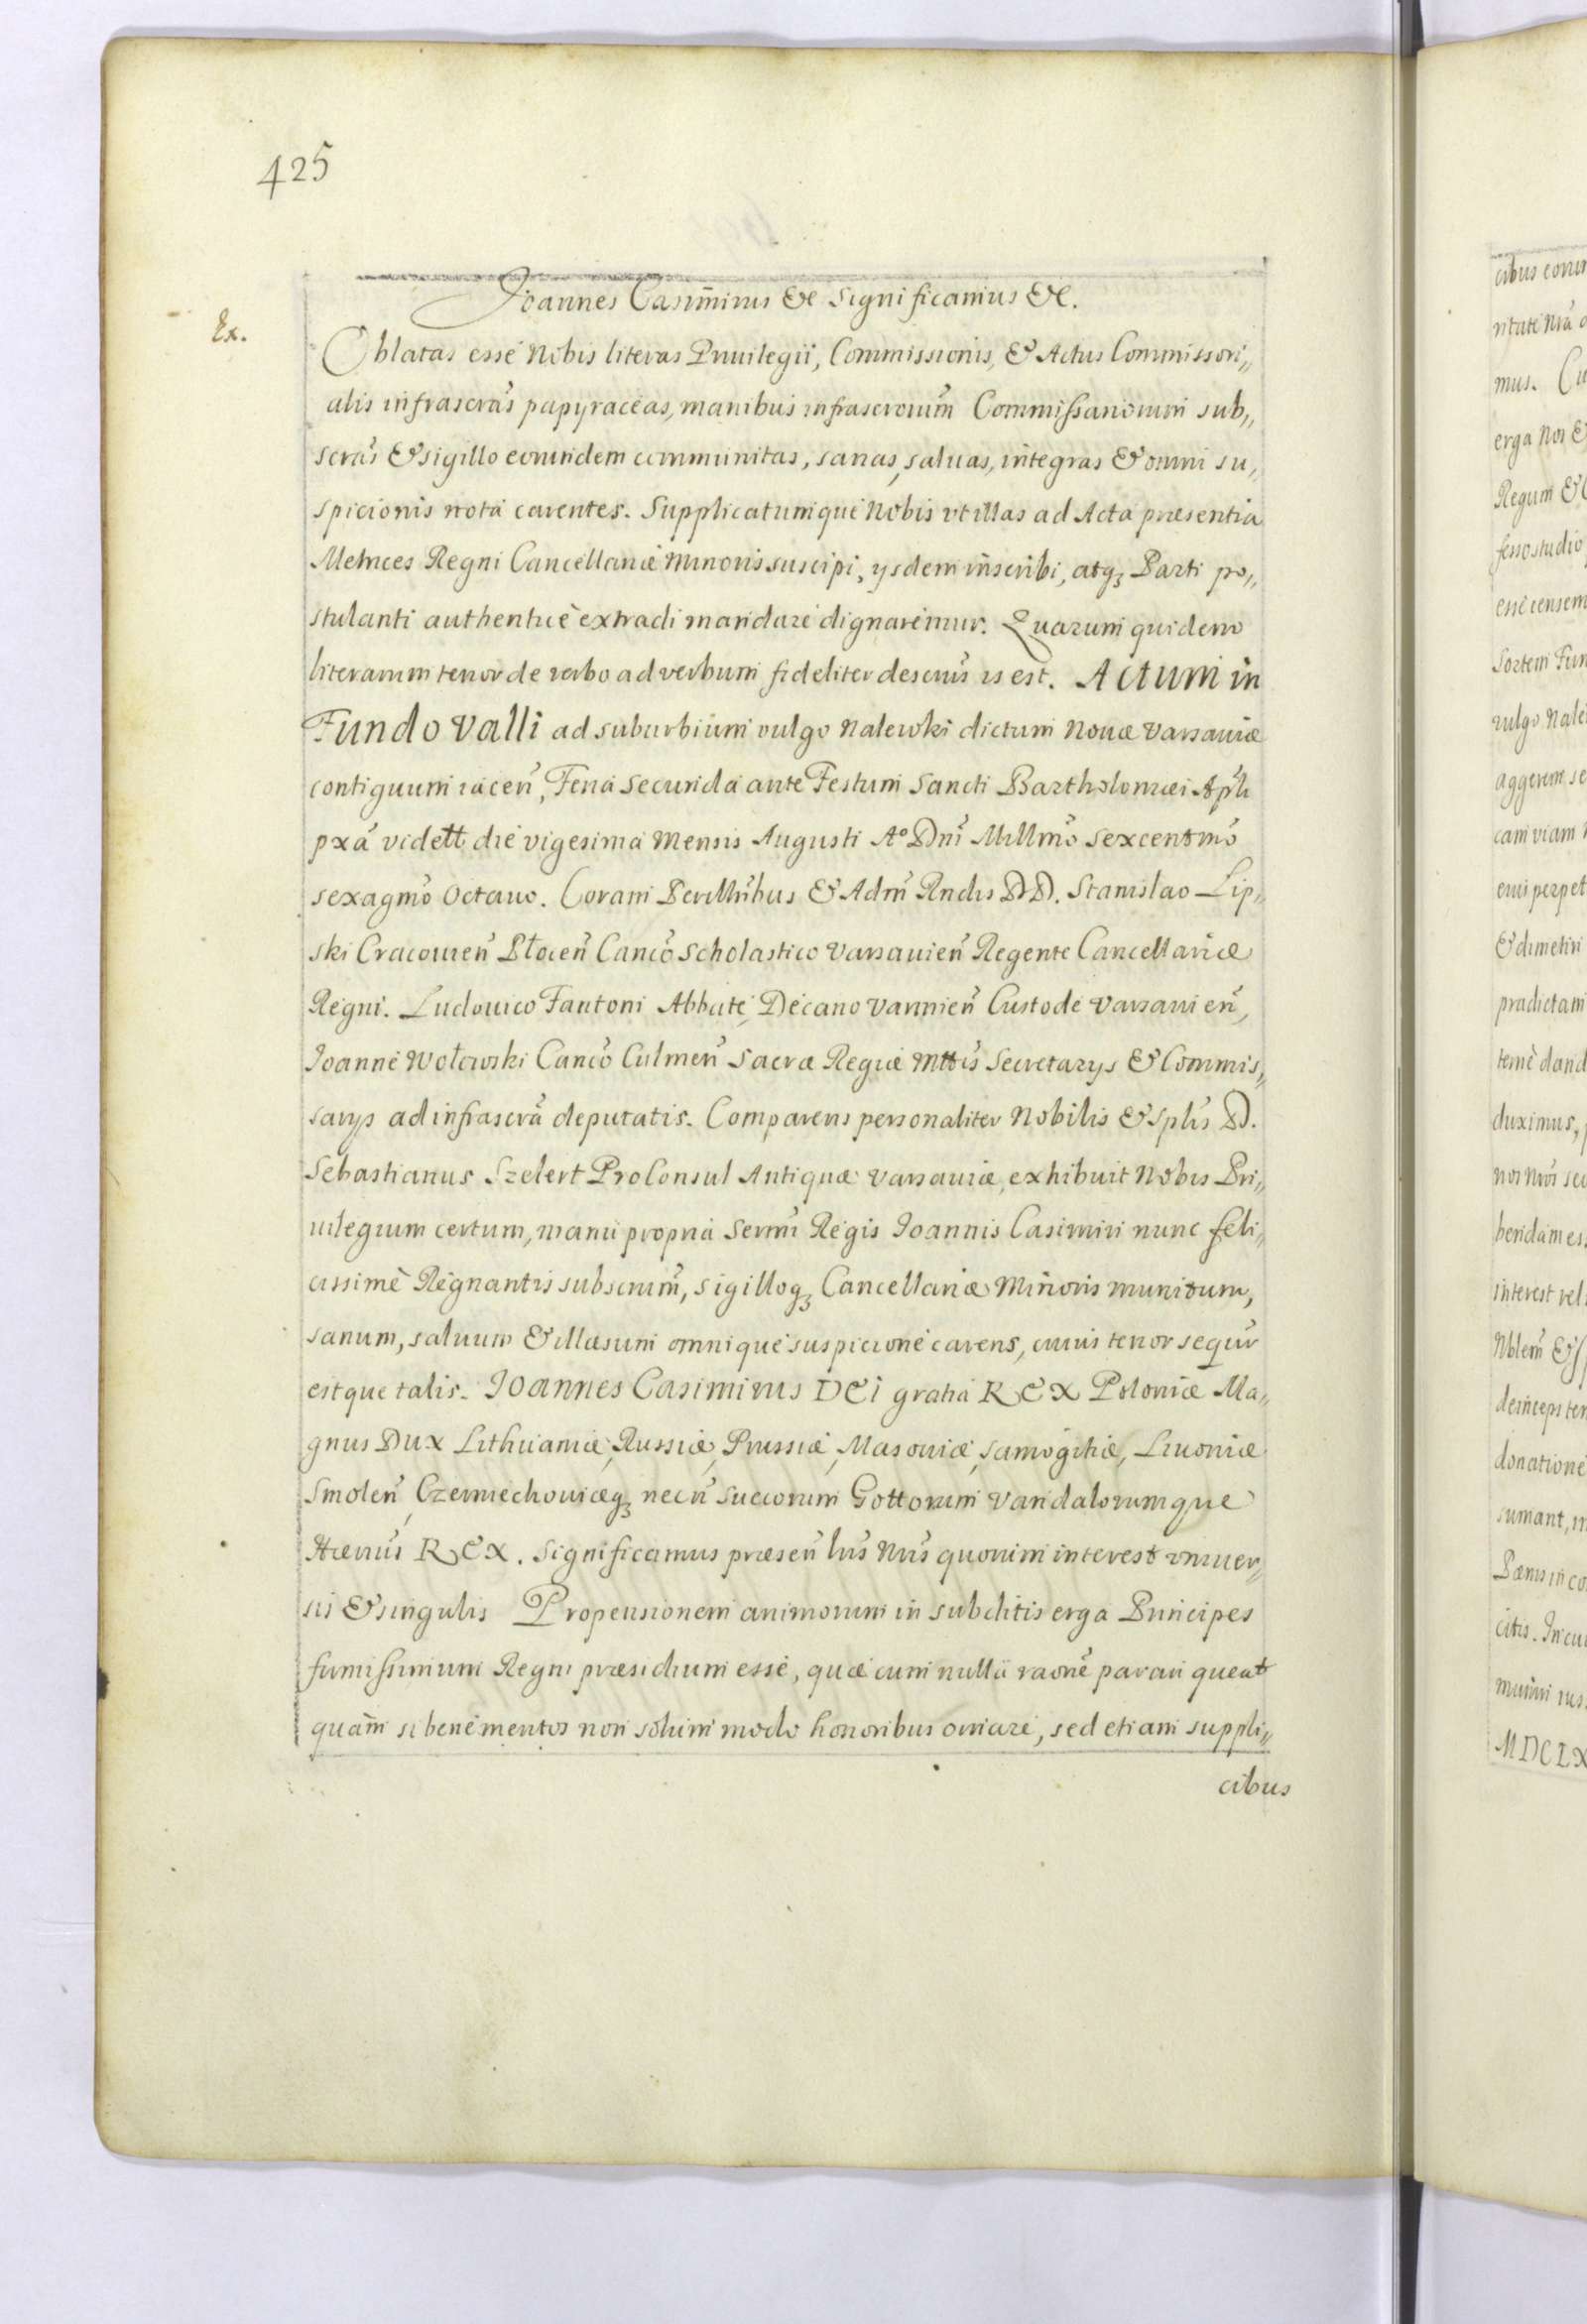 425
Joannes Casimirus &c Significamus &c.
Ex.
Oblatas esse Nobis literas Priuilegii, Commissionis, & Actus Commissori„
alis infrascras̃ papyraceas, manibus infrascrorum̃ Commissariorum sub„
scras̃ & sigillo eorundem communitas, sanas, saluas, integras & omni su„
spicionis nota carentes. Supplicatumque Nobis vt illas ad Acta præsentia
Metrices Regni Cancellariæ Minoris suscipi, ysdem inscribi, atq3 Parti po„
stulanti authenticè extradi mandare dignaremur. Quarum quidem
literarum tenor de verbo ad verbum fideliter descrius̃ is est. Actum in
Fundo Valli ad suburbium vulgo Nalewki dictum Nouæ Varsauiæ
contiguum iacen̄, Feria Secunda ante Festum Sancti Bartholomæi Apl̃i
pxã vidett die vigesima Mensis Augusti A° Dni̅ Millmõ Sexcentmõ
sexagmõ Octauo. Coram Perillrĩbus & Adm̃ Rndis DD. Stanislao Lip„
ski Cracouien̄ Płocen̄ Cancõ Scholastico Varsauien̄ Regente Cancellariæ
Regni. Ludouico Fantoni Abbate, Decano Varmien̄ Custode Varsauien̄,
Joanne Wolowski Cancõ Culmen̄ Sacræ Regiæ Mttis̃ Secretarys & Commis„
sarys ad infrascrã deputatis. Comparens personaliter Nobilis & Splis̃ D.
Sebastianus Szelert ProConsul Antiquæ Varsauiæ, exhibuit Nobis Pri„
uilegium certum, manu propria Sermĩ Regis Joannis Casimiri nunc feli„
cissimè Regnantis subscrium̃, sigilloq3 Cancellariæ Minoris munitum,
sanum, saluum & illæsum omnique suspicione carens, cuius tenor sequr̃
estque talis. Joannes Casimirus DEI gratia REX Poloniæ Ma„
gnus Dux Lithuaniæ, Russiæ, Prussiæ, Masouiæ, Samogitiæ, Liuoniæ
Smolen̄, Czerniechouiæq3 necn̄ Suecorum Gottorum Vandalorumque
Hærius̃ REX. Significamus præsen̄ lris̃ Nris̃ quorum interest vniuer„
sis & singulis Propensionem animorum in subditis erga Principes
firmissimum Regni præsidium esse, quæ cum nulla raone̅ parari queat
quam̅ si benemeritos non solum modo honoribus ornare, sed etiam suppli„
cibus